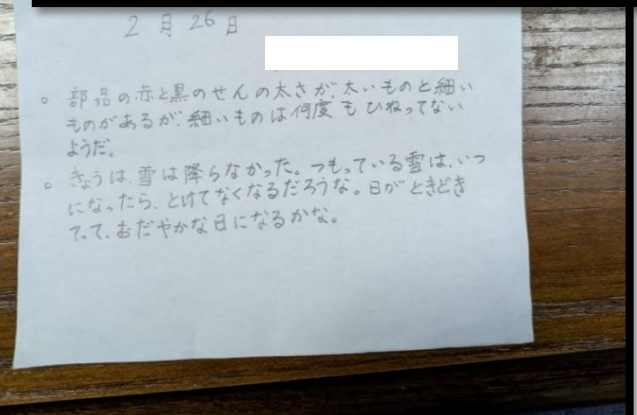 2月26日
。部品の赤と黒のせんの太さが、太いものと細い
ものがあるが、細いものは何度もひねってない
ようだ。
。きょうは、雪は降らなかった。つもっている雪は、いつ
になったら、とけてなくなるだろうな。日がときどき
てって、おだやかな日になるかな。